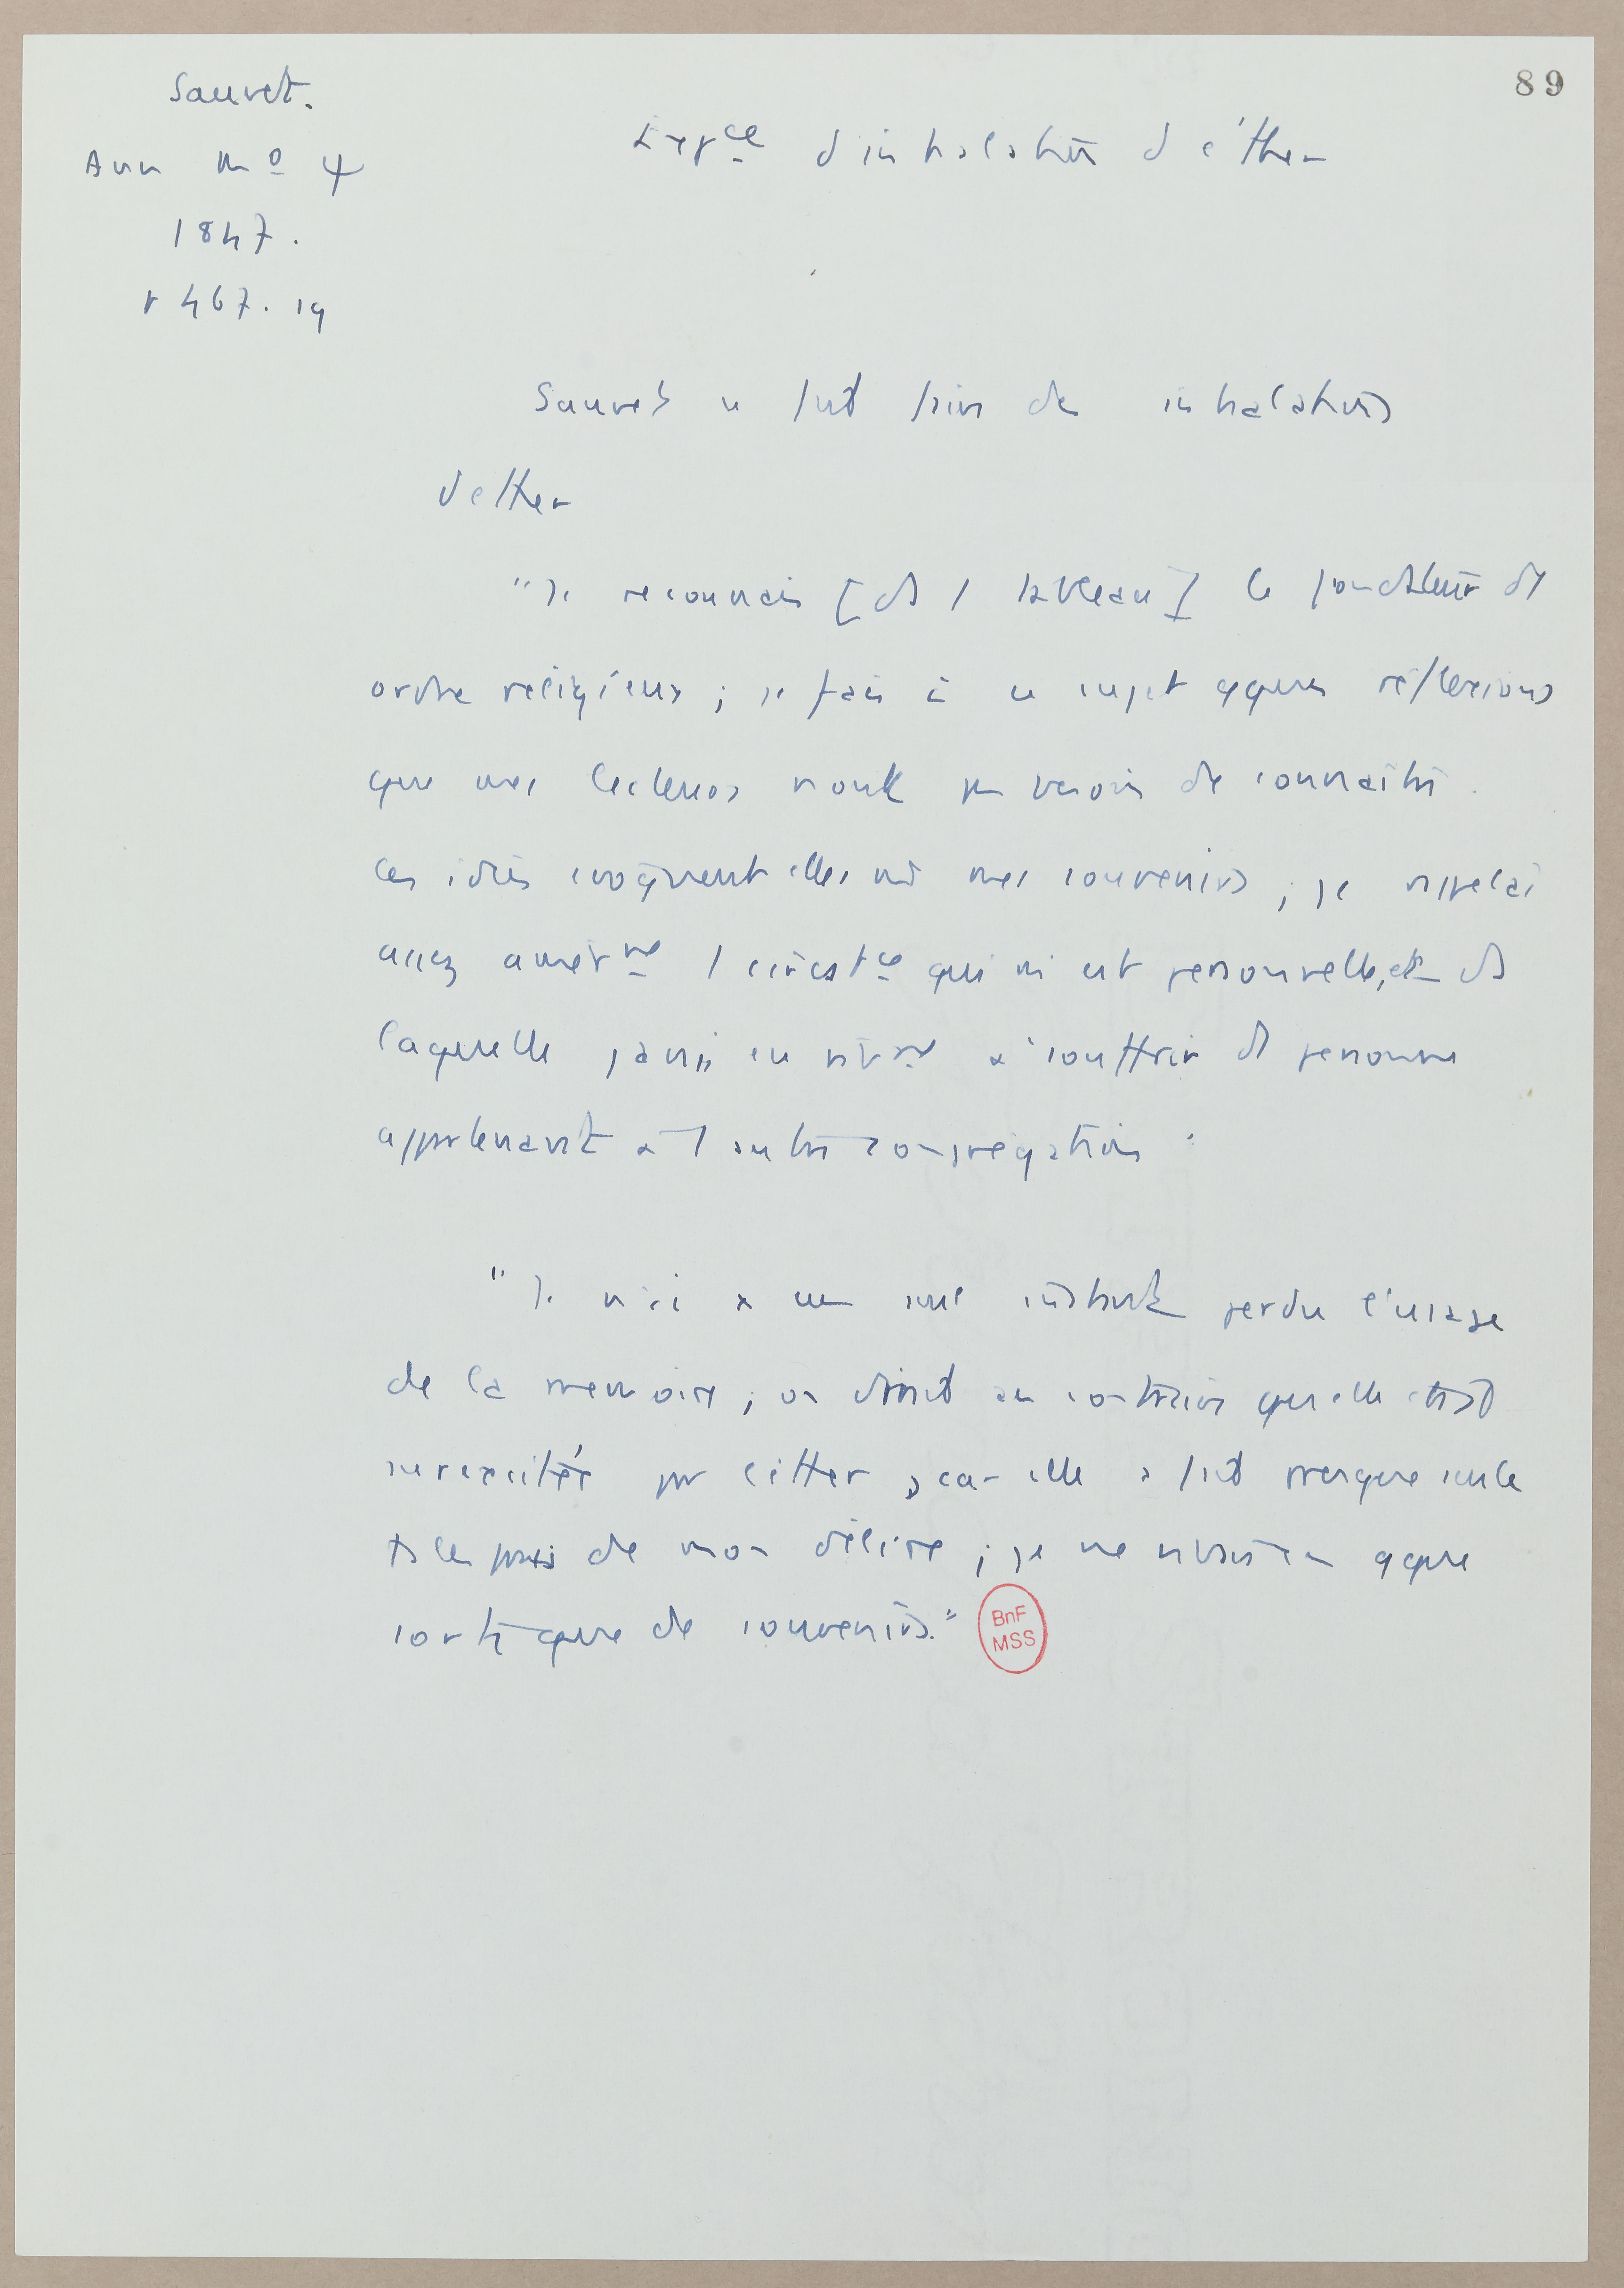 89
Sauvet.
Ann Mº 4
1847.
p 467. sq
Expce d'inhalation d'éther
Sauvet se fait faire des inhalations
d'ether
"Je reconnais [ds 1 tableau] le fondateur d'1
ordre religieux ; je fais à ce sujet qques réflexions
que mes lecteurs n'ont pas besoin de connaître
Ces idées évoquent elles mes souvenirs ; je rappelai
assez amèrmt 1 circstce qui m'est personnelle, et ds
laquelle j'avais eu à souffrir d personnes
appartenant à 1 autre congrégation :
"Je n'ai a un seul instant perdu l'usage
de la memoire ; on dirait au contraire qu'elle était
surexcitée par l'ether, car elle a fait presque seule
ts les frais de mon délire ; je ne vivais en qque
sorte que de souvenirs."
BnF
MSS